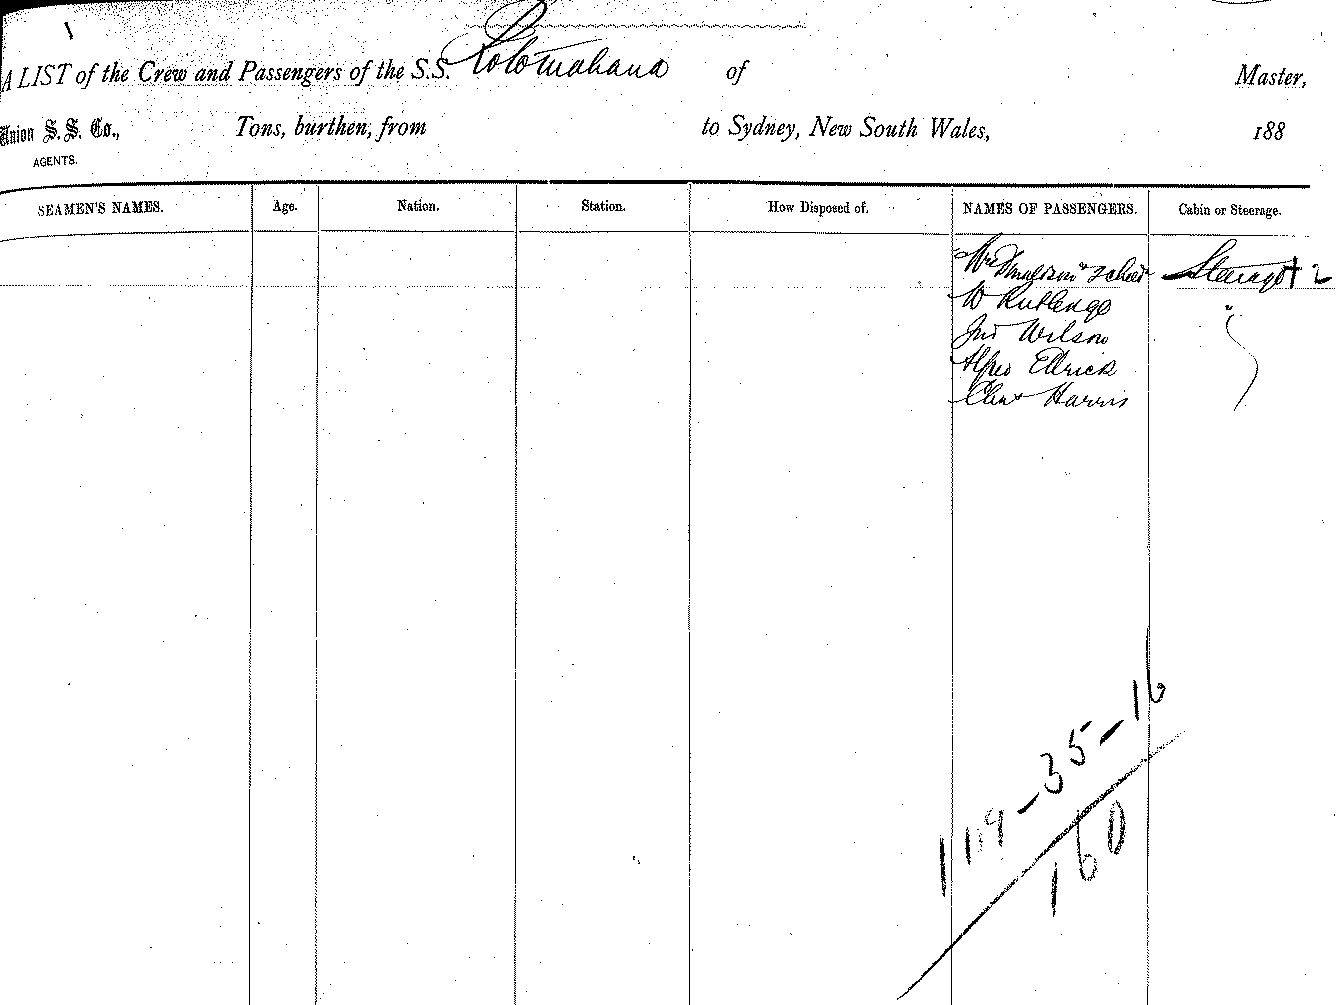 A LIST of the Crew and Passengers of the S.S. Rotomahana of Master,
Union S. S. Co., Tons, burthen, from to Sydney, New South Wales, 188
AGENTS.
SEAMEN'S NAMES. Age. Nation. Station. How Disposed of. NAMES OF PASSENGERS. Cabin or Steerage.
Mrs & 2 child Steerage + 2
W Rutledge "
Jno Wilson
Alfred Edrick
Chas Harris
119 - 35 - 16
160